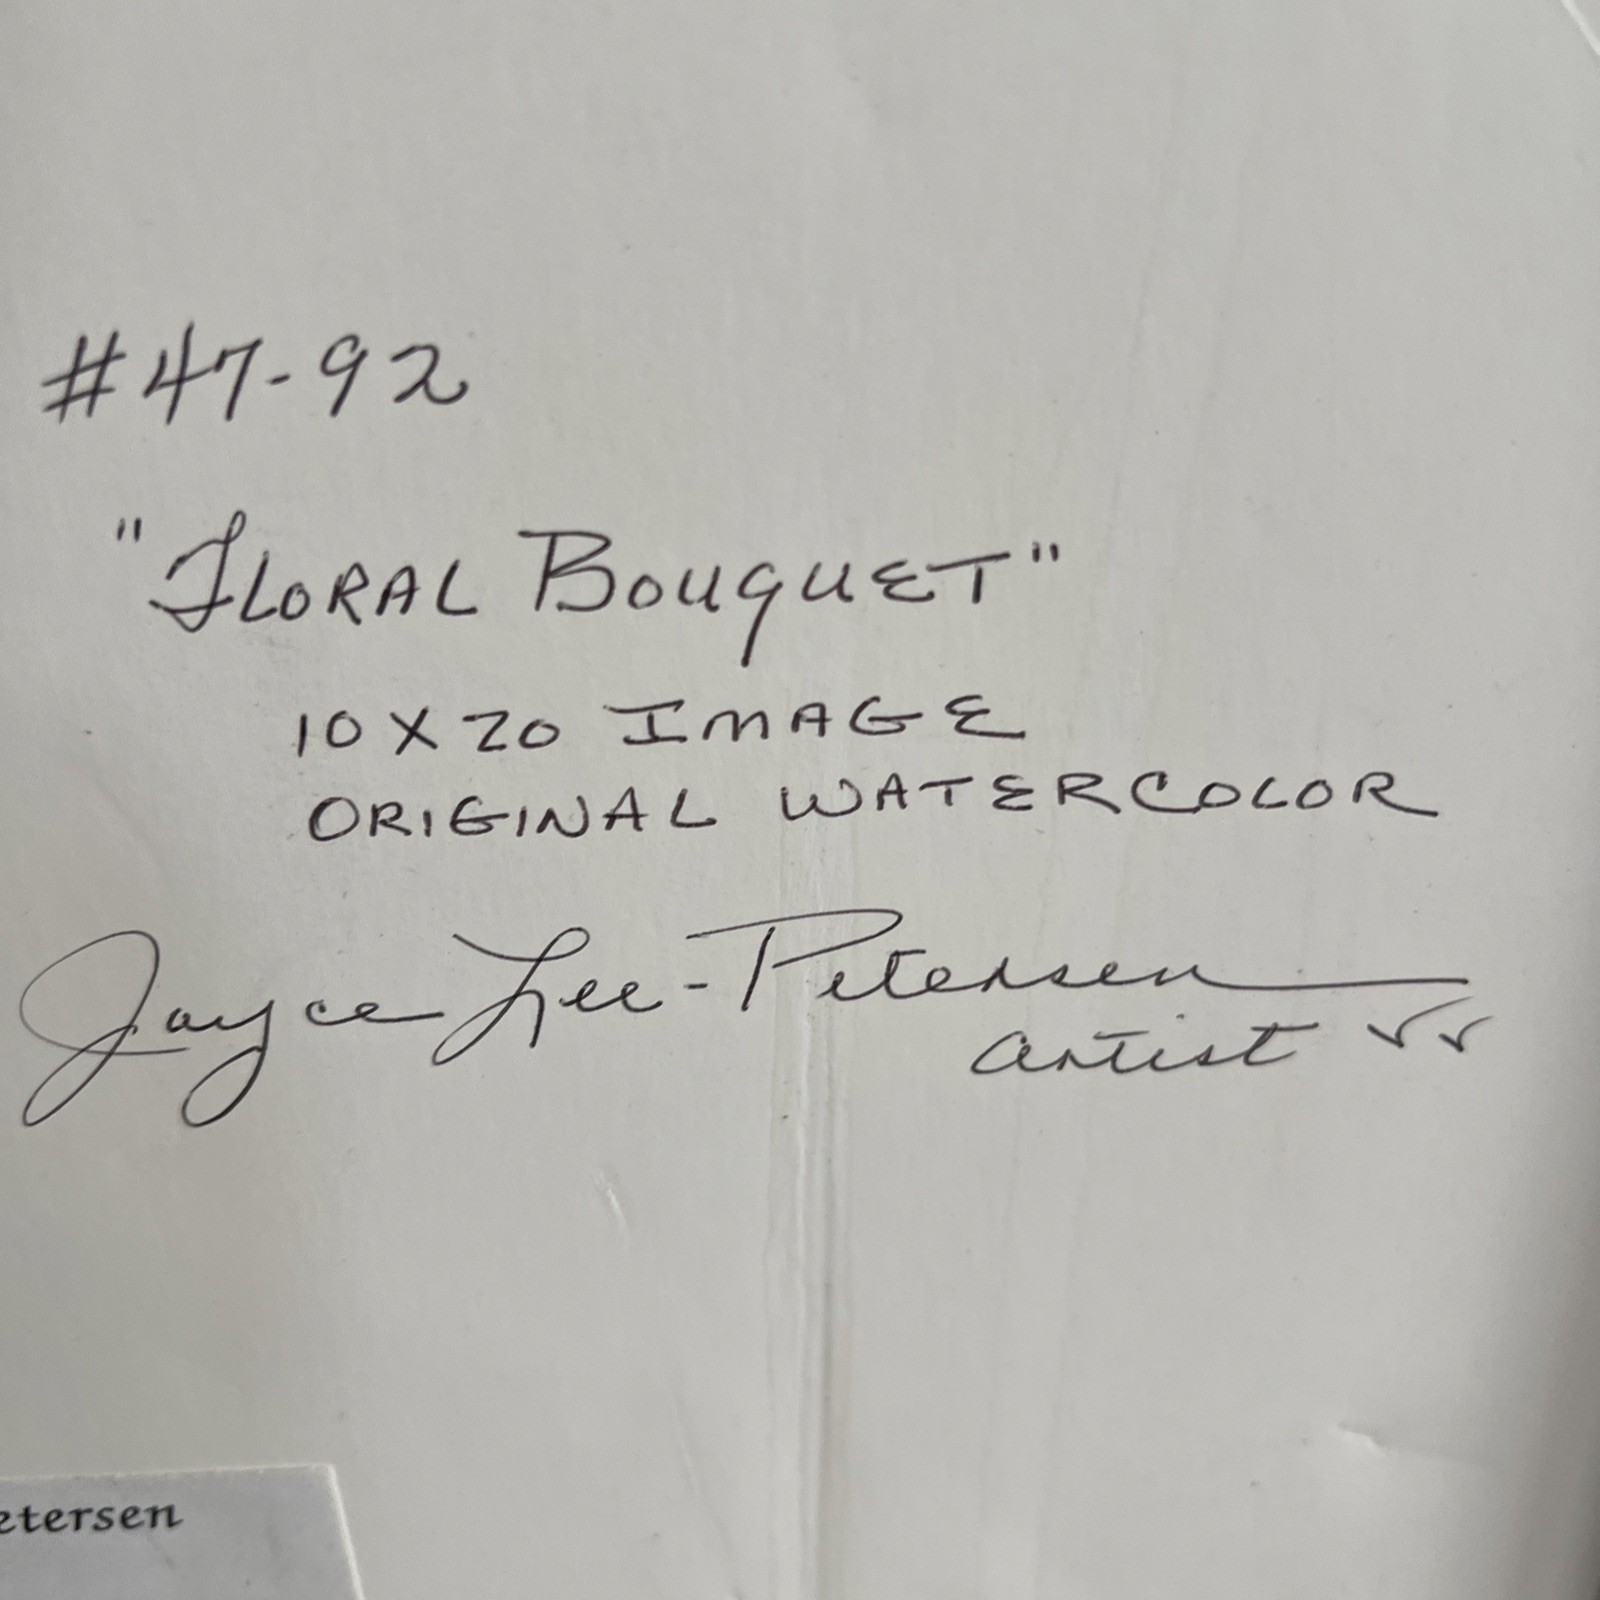 #47-92
"FLORAL BOUQUET"
10 X 20 IMAGE
ORIGINAL WATERCOLOR
Jayce Lee-Petersen
artist
etersen